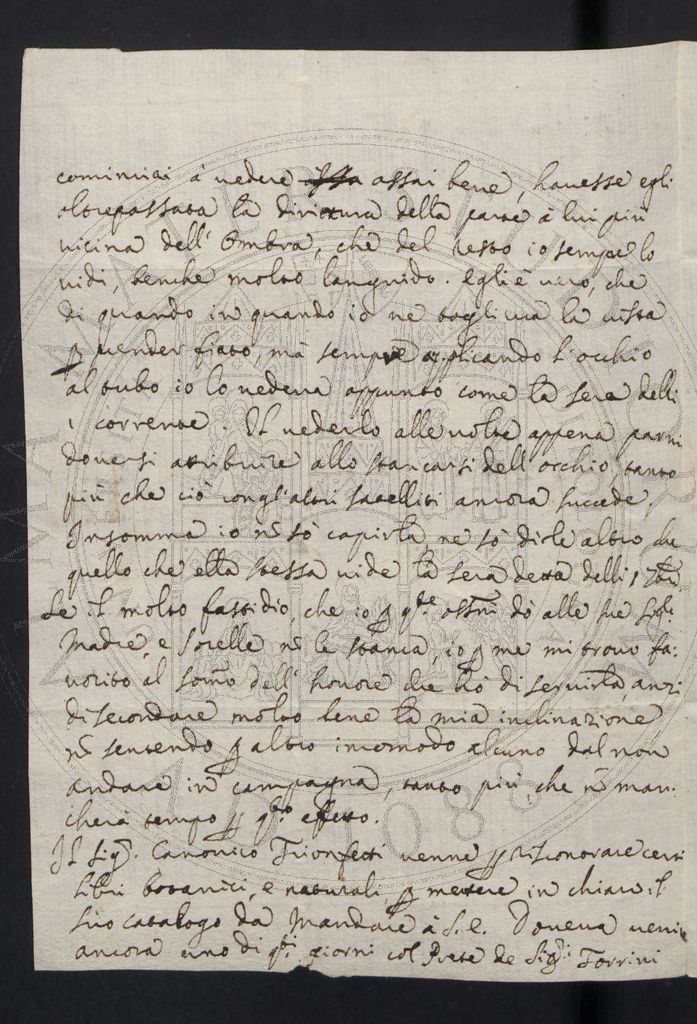 cominciai à vedere assai bene, havesse egli
oltrepassata la dirittura della parte à lui più
vicina dell' Ombra, che del resto io sempre lo
vidi, benche molto languido. Egli è vero, che
di quando in quando io ne toglieva la vista
p vender fiato, mà sempre applicando l'occhio
al tubo io lo vedeva appunto come la sera delli
1 corrente. Il vederlo alle volte appena parmi
doversi attribuire allo stancarsi dell'occhio tanto
più che ciò congl'altri satelliti ancora succede.
Insomma io nō sò capirla ne sò dirle altro che
quello che ella stessa vide la sera detta delli 1
Se il molto fastidio, che io p qte ossni dò alle sue Sigre
Madre, e Sorelle nō le stanca, io p me mi trovo fa-
vorito al somō dell'honore che hò di servirla, anzi
di secondare molto bene la mia inclinazione
nō sentendo p altro incomodo alcuno dal non
andare in campagna, tanto più, che nō man-
cherà tempo p qto effetto.
Il Sigr. Canonico Trionfetti venne p riscontrare certi
libri botanici, e naturali, p mettere in chiaro il
suo catalogo da mandare à S.E. Doveva venir
ancora uno di qti giorni col Prete de Sigri Torrini